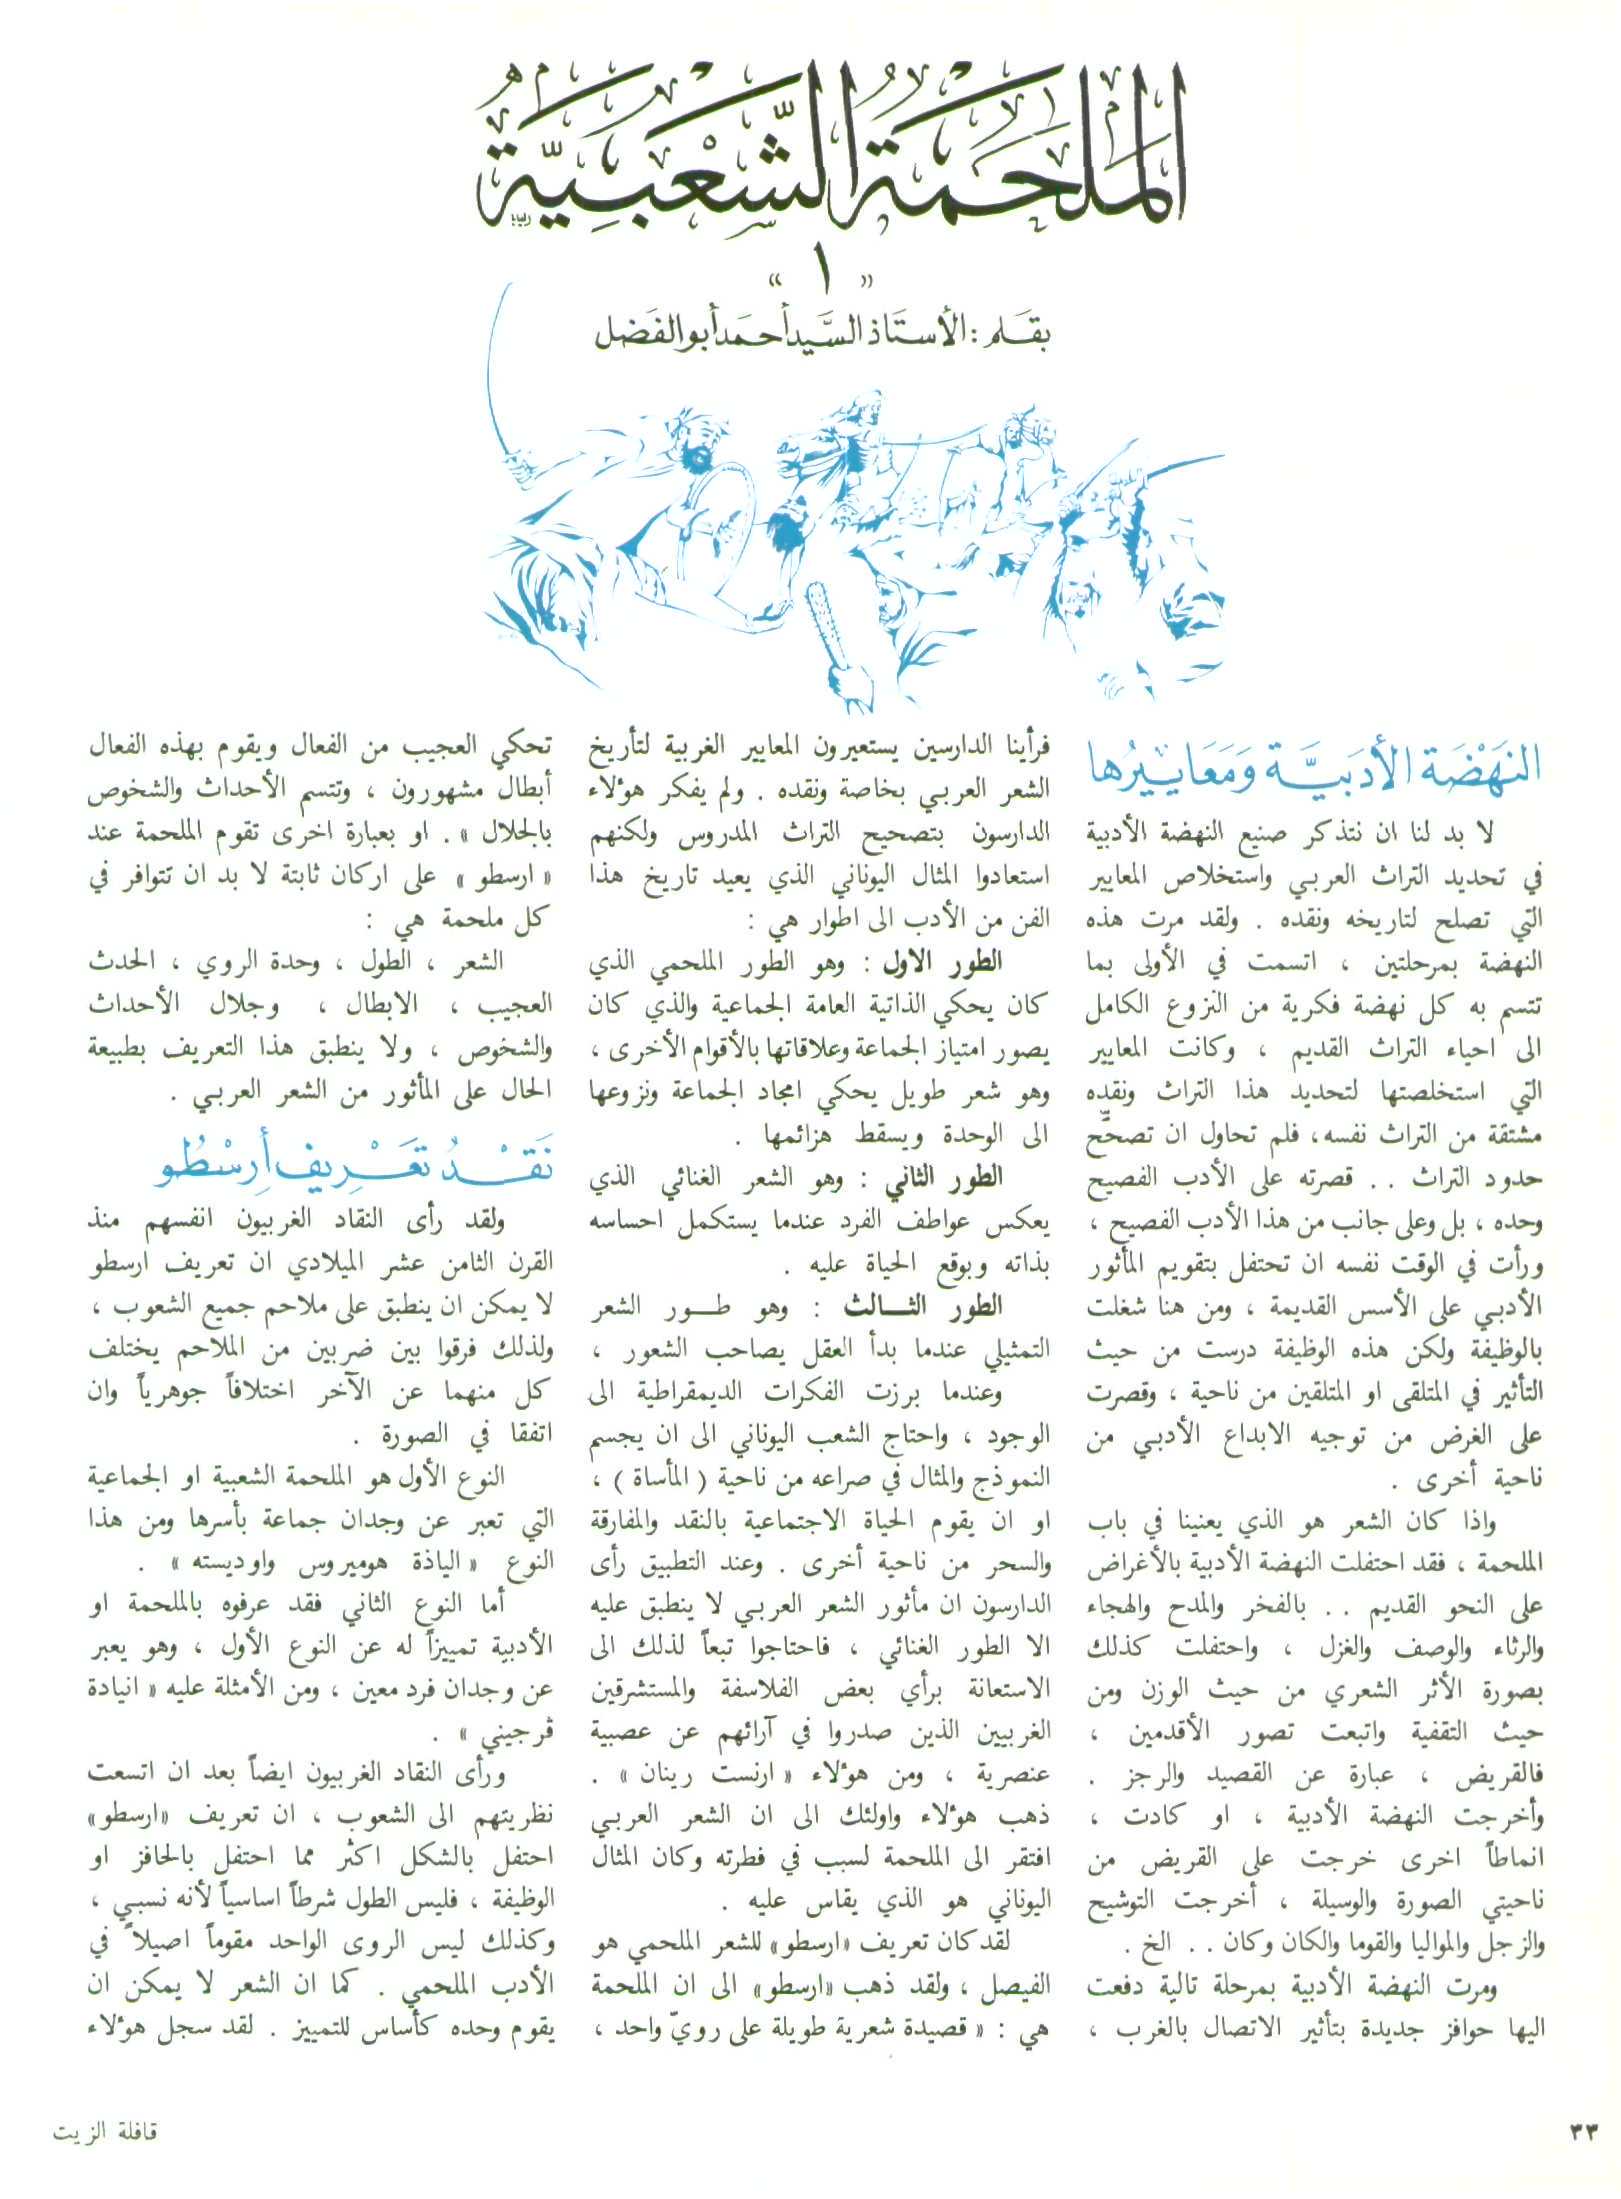 الملحمة الشعبية
« ١ »
بقلم : الأستاذ السيد أحمد أبو الفضل
النهضة الأدبية ومعاييرها
لا بد لنا ان نتذكر صنيع النهضة الأدبية
في تحديد التراث العربي واستخلاص المعايير
التي تصلح لتاريخه ونقده . ولقد مرت هذه
النهضة بمرحلتين ، اتسمت في الأولى بما
تتسم به كل نهضة فكرية من النزوع الكامل
الى احياء التراث القديم ، وكانت المعايير
التي استخلصتها لتحديد هذا التراث ونقده
مشتقة من التراث نفسه ، فلم تحاول ان تصحّح
حدود التراث . . قصرته على الأدب الفصيح
وحده ، بل وعلى جانب من هذا الأدب الفصيح ،
ورأت في الوقت نفسه ان تحتفل بتقويم المأثور
الأدبي على الأسس القديمة ، ومن هنا شغلت
بالوظيفة ولكن هذه الوظيفة درست من حيث
التأثير في المتلقى او المتلقين من ناحية ، وقصرت
على الغرض من توجيه الابداع الأدبي من
ناحية أخرى .
واذا كان الشعر هو الذي يعنينا في باب
الملحمة ، فقد احتفلت النهضة الأدبية بالأغراض
على النحو القديم . . بالفخر والمدح والهجاء
والرثاء والوصف والغزل ، واحتفلت كذلك
بصورة الأثر الشعري من حيث الوزن ومن
حيث التقفية واتبعت تصور الأقدمين ،
فالقريض ، عبارة عن القصيد والرجز .
وأخرجت النهضة الأدبية ، او كادت ،
انماطاً اخرى خرجت على القريض من
ناحيتي الصورة والوسيلة ، أخرجت التوشيح
والزجل والمواليا والقوما والكان وكان . . الخ .
ومرت النهضة الأدبية بمرحلة تالية دفعت
اليها حوافز جديدة بتأثير الاتصال بالغرب ،
فرأينا الدارسين يستعيرون المعايير الغربية لتأريخ
الشعر العربي بخاصة ونقده . ولم يفكر هؤلاء
الدارسون بتصحيح التراث المدروس ولكنهم
استعادوا المثال اليوناني الذي يعيد تاريخ هذا
الفن من الأدب الى اطوار هي :
الطور الاول : وهو الطور الملحمي الذي
كان يحكي الذاتية العامة الجماعية والذي كان
يصور امتياز الجماعة وعلاقاتها بالأقوام الأخرى ،
وهو شعر طويل يحكي امجاد الجماعة ونزوعها
الى الوحدة ويسقط هزائمها .
الطور الثاني : وهو الشعر الغنائي الذي
يعكس عواطف الفرد عندما يستكمل احساسه
بذاته وبوقع الحياة عليه .
الطور الثـــالث : وهو طــور الشعر
التمثيلي عندما بدأ العقل يصاحب الشعور ،
وعندما برزت الفكرات الديمقراطية الى
الوجود ، واحتاج الشعب اليوناني الى ان يجسم
النموذج والمثال في صراعه من ناحية ( المأساة ) ،
او ان يقوم الحياة الاجتماعية بالنقد والمفارقة
والسحر من ناحية أخرى . وعند التطبيق رأى
الدارسون ان مأثور الشعر العربي لا ينطبق عليه
الا الطور الغنائي ، فاحتاجوا تبعاً لذلك الى
الاستعانة برأي بعض الفلاسفة والمستشرقين
الغربيين الذين صدروا في آرائهم عن عصبية
عنصرية ، ومن هؤلاء « ارنست رينان » .
ذهب هؤلاء واولئك الى ان الشعر العربي
افتقر الى الملحمة لسبب في فطرته وكان المثال
اليوناني هو الذي يقاس عليه .
لقد كان تعريف «ارسطو» للشعر الملحمي هو
الفيصل ، ولقد ذهب «ارسطو» الى ان الملحمة
هي : « قصيدة شعرية طويلة على رويّ واحد ،
تحكي العجيب من الفعال ويقوم بهذه الفعال
أبطال مشهورون ، وتتسم الأحداث والشخوص
بالجلال » . او بعبارة اخرى تقوم الملحمة عند
« ارسطو » على اركان ثابتة لا بد ان تتوافر في
كل ملحمة هي :
الشعر ، الطول ، وحدة الروي ، الحدث
العجيب ، الابطال ، وجلال الأحداث
والشخوص ، ولا ينطبق هذا التعريف بطبيعة
الحال على المأثور من الشعر العربي .
نقد تعريف أرسطو
ولقد رأى النقاد الغربيون انفسهم منذ
القرن الثامن عشر الميلادي ان تعريف ارسطو
لا يمكن ان ينطبق على ملاحم جميع الشعوب ،
ولذلك فرقوا بين ضربين من الملاحم يختلف
كل منهما عن الآخر اختلافاً جوهرياً وان
اتفقا في الصورة .
النوع الأول هو الملحمة الشعبية او الجماعية
التي تعبر عن وجدان جماعة بأسرها ومن هذا
النوع « الياذة هوميروس واوديسته » .
أما النوع الثاني فقد عرفوه بالملحمة او
الأدبية تمييزاً له عن النوع الأول ، وهو يعبر
عن وجدان فرد معين ، ومن الأمثلة عليه « انيادة
ڤرجيني » .
ورأى النقاد الغربيون ايضاً بعد ان اتسعت
نظريتهم الى الشعوب ، ان تعريف «ارسطو»
احتفل بالشكل اكثر مما احتفل بالحافز او
الوظيفة ، فليس الطول شرطاً اساسياً لأنه نسبي ،
وكذلك ليس الروى الواحد مقوماً اصيلاً في
الأدب الملحمي . كما ان الشعر لا يمكن ان
يقوم وحده كأساس للتمييز . لقد سجل هؤلاء
٣٣
قافلة الزيت